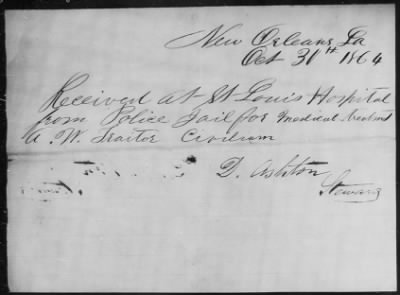 New Orleans La
Oct 31st 1864
Received at St Louis Hospital
from Police Jail for Medical
A. W. Traitor Civilian
D. Ashton
Steward